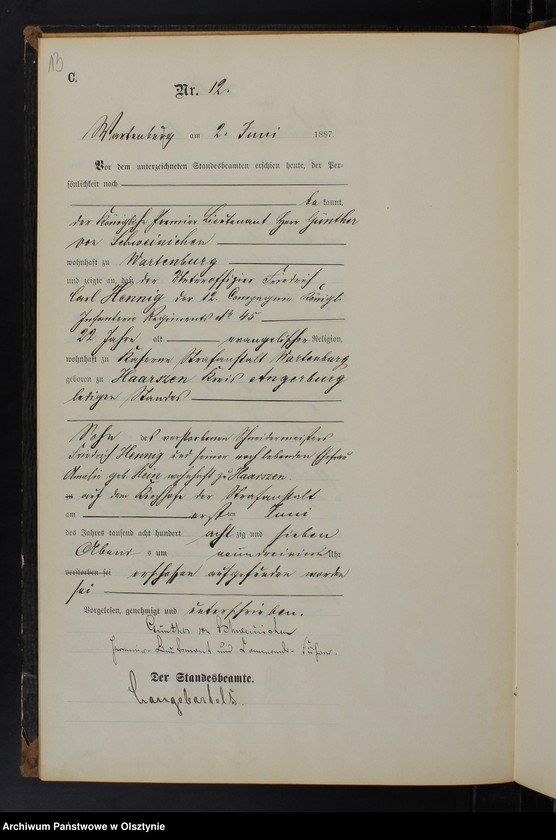 13
C.
Nr. 12.
Wartenburg am 2. Juni 1887.
Vor dem unterzeichneten Standesbeamten erschien heute, der Per-
sönlichkeit nach
be kannt,
der Königliche Premier Lieutenant Herr Günther
von Schweinichen
wohnhaft zu Wartenburg
und zeigte an, daß der Unteroffizier Friedrich
Carl Hennig der 12. Compagnie Königl.
Infanterie Regiments No 45
22 Jahre alt evangelischer Religion,
wohnhaft zu Kaserne Strafanstalt Wartenburg
geboren zu Haarszen Kreis Angerburg
ledigen Standes
Sohn des verstorbenen Schneidermeisters
Friedrich Hennig und seiner noch lebenden Ehefrau
Amalie geb. Hein wohnhaft zu Haarszen.
auf dem Kirchhofe der Strafanstalt
am ersten Juni
des Jahres tausend acht hundert acht zig und sieben
Abends um neundreiviertel Uhr
verstorben sei erschossen aufgefunden worden
sei
Vorgelesen, genehmigt und unterschrieben.
Günther von Schweinichen
Premier-Lieutenant und Commando-Führer.
Der Standesbeamte.
Langebartels.
Archiwum Państwowe w Olsztynie